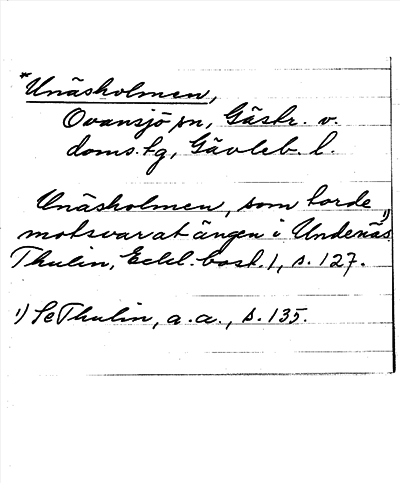 *Unäsholmen,
Ovansjö sn, Gästr. v.
doms.tg, Gävleb. l.
Unäsholmen, som torde
motsvarat ängen i Undenäs 1)
Thulin, Eckl. bost. 1, s. 127.
1) Se Thulin, a.a., s. 135.